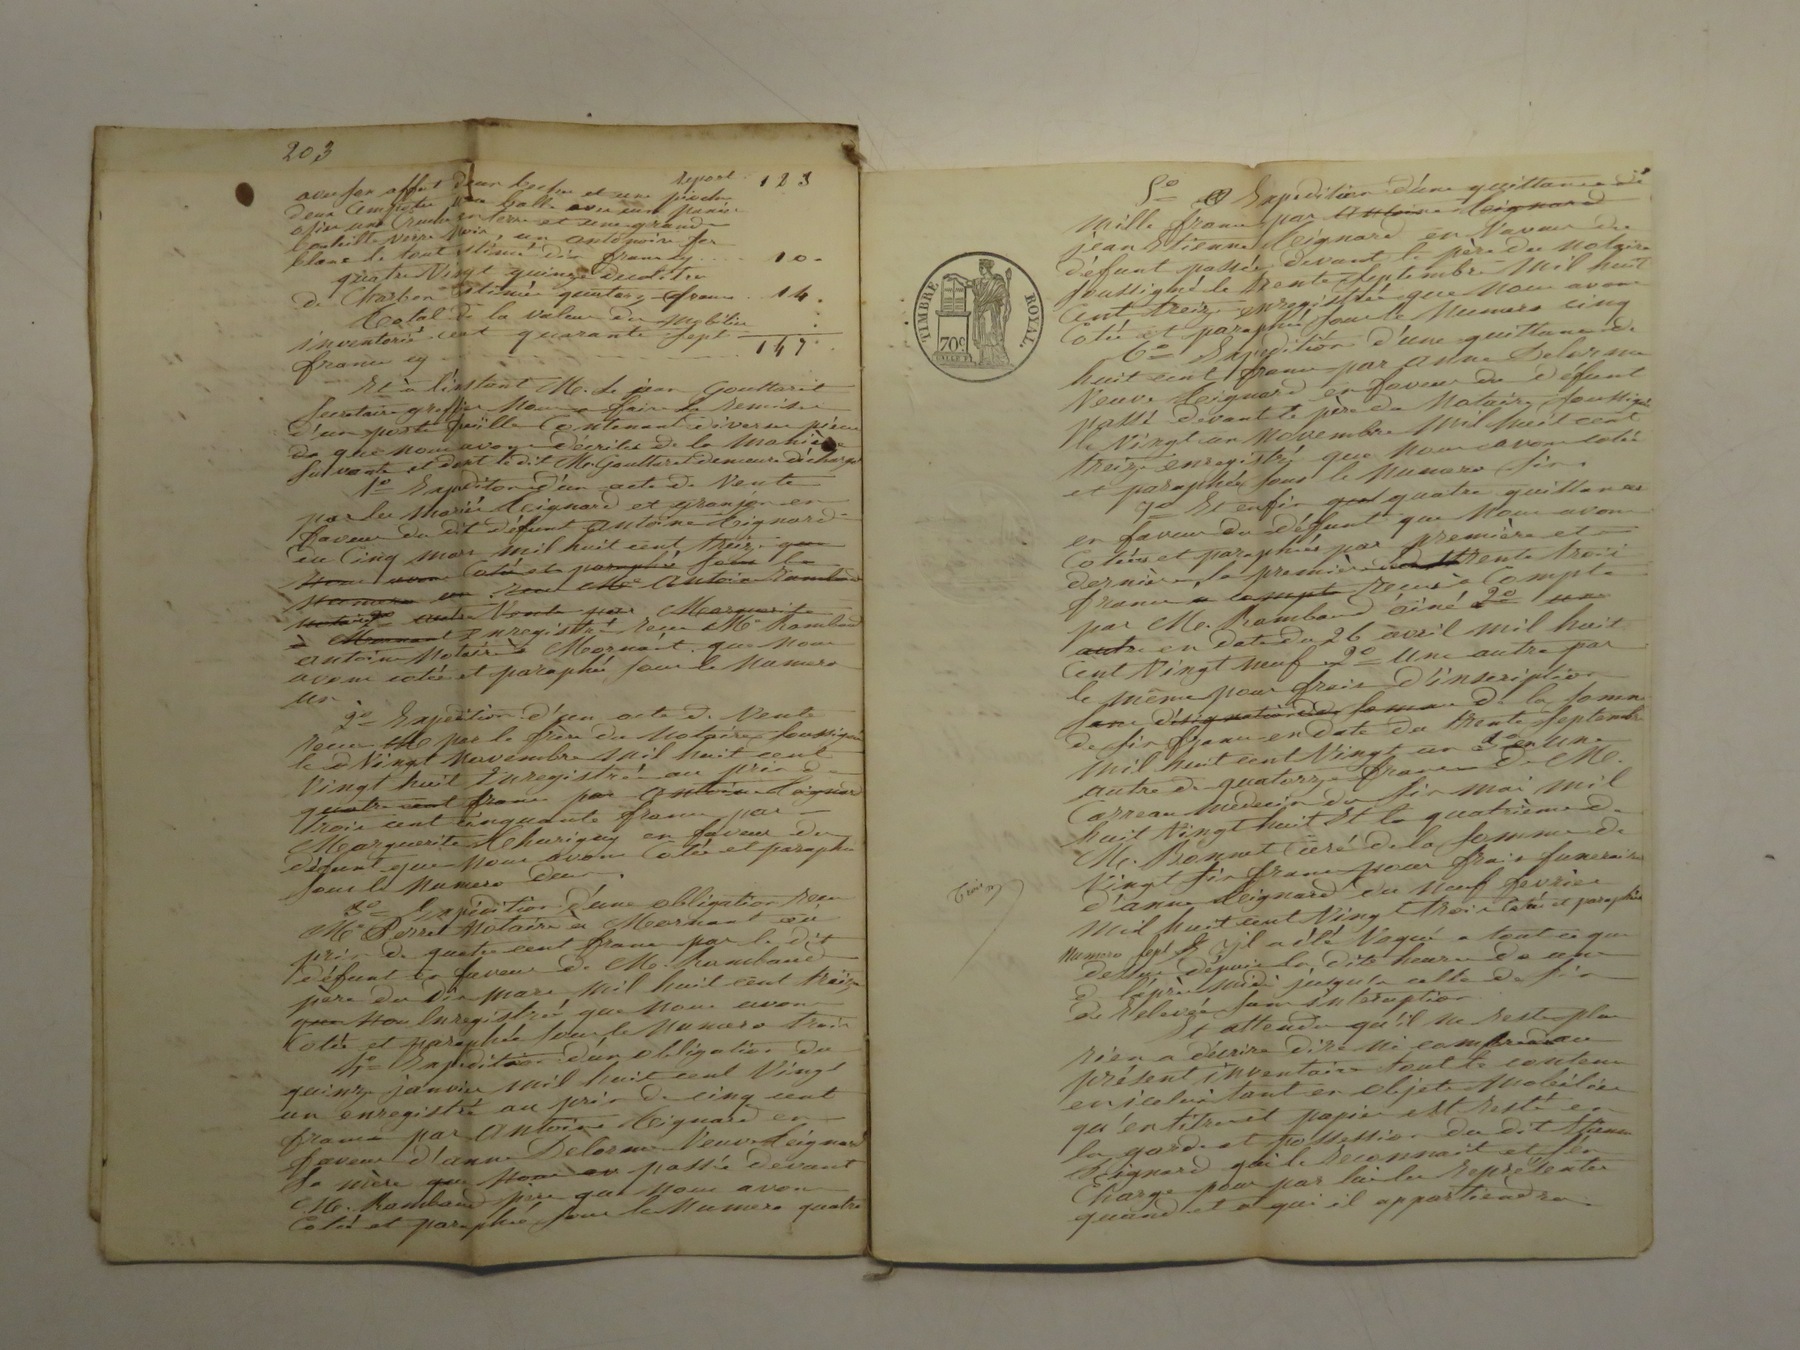 203
Report 123
deux
osier une Cruche en terre et une grande
bouteille verre noir, un entonnoir fer
blanc le tout estimé dix francs cy .... 10.
quatre Vingt quinze
de Charbon estimé quatorze francs . 14.
Total de la valeur du mobilier
inventorié cent quarante sept
francs cy 147
Et à l'instant M. Le jean Gouttaret
Secretaire greffier Nous a faire la remise
d'un porte feuille Contenant diverses pièces
que nous avons décrites de la manière
Suivante et dont le dit M. Gouttaret demeure déchargé
1º Expedition d'un acte de Vente
par les mariés Leignard et granjon en
faveur du dit défunt antoine Leignard
du Cinq mars mil huit cent treize que
nous avons Coté et paraphé sous le
Numero un Recu Me Antoine Rambaud
notaire 2º autre Vente par Marguerite
à Mornant Enregistré recu Me Rambaud
antoine Notaire à Mornant que nous
avons cotée et paraphé sous le Numero
un
2º Expedition d'un acte de Vente
recu Me par le père du Notaire Soussigné
le Vingt Novembre Mil huit cent
Vingt huit Enregistrée au prix de
quatre cent francs par Antoine Leignard
trois cent cinquante francs par
Marguerite en faveur du
défunt que nous avons Cotée et paraphé
sous le Numero deux.
3º Expedition d'une obligation recu
Me Perret Notaire à Mornant au
prix de quatre cent francs par le dit
défunt en faveur de M. Rambaud
père du dix mars mil huit cent treize
que Nou Enregistrée que nous avons
Cotée et paraphée sous le Numero trois
4º Expedition d'un obligation du
quinze janvier mil huit cent Vingt
un enregistré au prix de cinq cent
francs par Antoine Leignard en
faveur d'anne Delorme Veuve Leignard
Sa mère que Nous av passée devant
M. Rambaud père que nous avons
Cotée et paraphée sous le Numero quatre
TIMBRE ROYAL.
70c
5º Expedition d'une quittance de
Mille francs par Antoine Leignard
jean Etienne Leignard en faveur du
défunt passée devant le père du Notaire
Soussigné le trente Septembre Mil huit
Cent treize enregistrée que nous avons
Cotée et paraphée sous le Numero cinq
6º Expedition d'une quittance de
huit cent francs par Anne Delorme
Veuve Leignard en faveur du défunt
passé devant le père du Notaire Soussigné
le Vingt un Novembre Mil huit cent
treize enregistrée que nous avons cotée
et paraphée sous le Numero six.
7º Et enfin quatre quittances
en faveur du défunt que nous avons
Cotées et paraphées par première et
dernière, la première trente trois
francs a compte recus à Compte
par M. Rambaud ainé 2º une
autre en date du 26 avril mil huit
Cent Vingt neuf 2º Une autre par
le même pour frais d'inscription
Sans désignation de Somme de la Somme
de six francs en date du trente Septembre
Mil huit cent Vingt un 3º Une
autre de quatorze francs de M.
Carreau médecin du six mai mil
huit Vingt huit et la quatrième de
M. Bonnet Curé de la Somme de
Vingt six francs pour frais funeraires
d'anne Leignard du neuf fevrier
mil huit cent Vingt trois Cotée et paraphée
Numero Sept Et il a été Vaqué a tout ce que
dessus depuis la dite heure de une
de l'après midi jusqu'a celle de six
de relevée Sans interruption
Et attendu qu'il ne reste plus
rien a décrire dire ni comprendre au
présent inventaire tout le contenu
en icelui tant en objets Mobiliers
qu'en titres et papiers est resté en
la garde et possession du dit
Leignard qui le reconnait et s'en
Charge pour par lui les représenter
quand et a qui il appartiendra